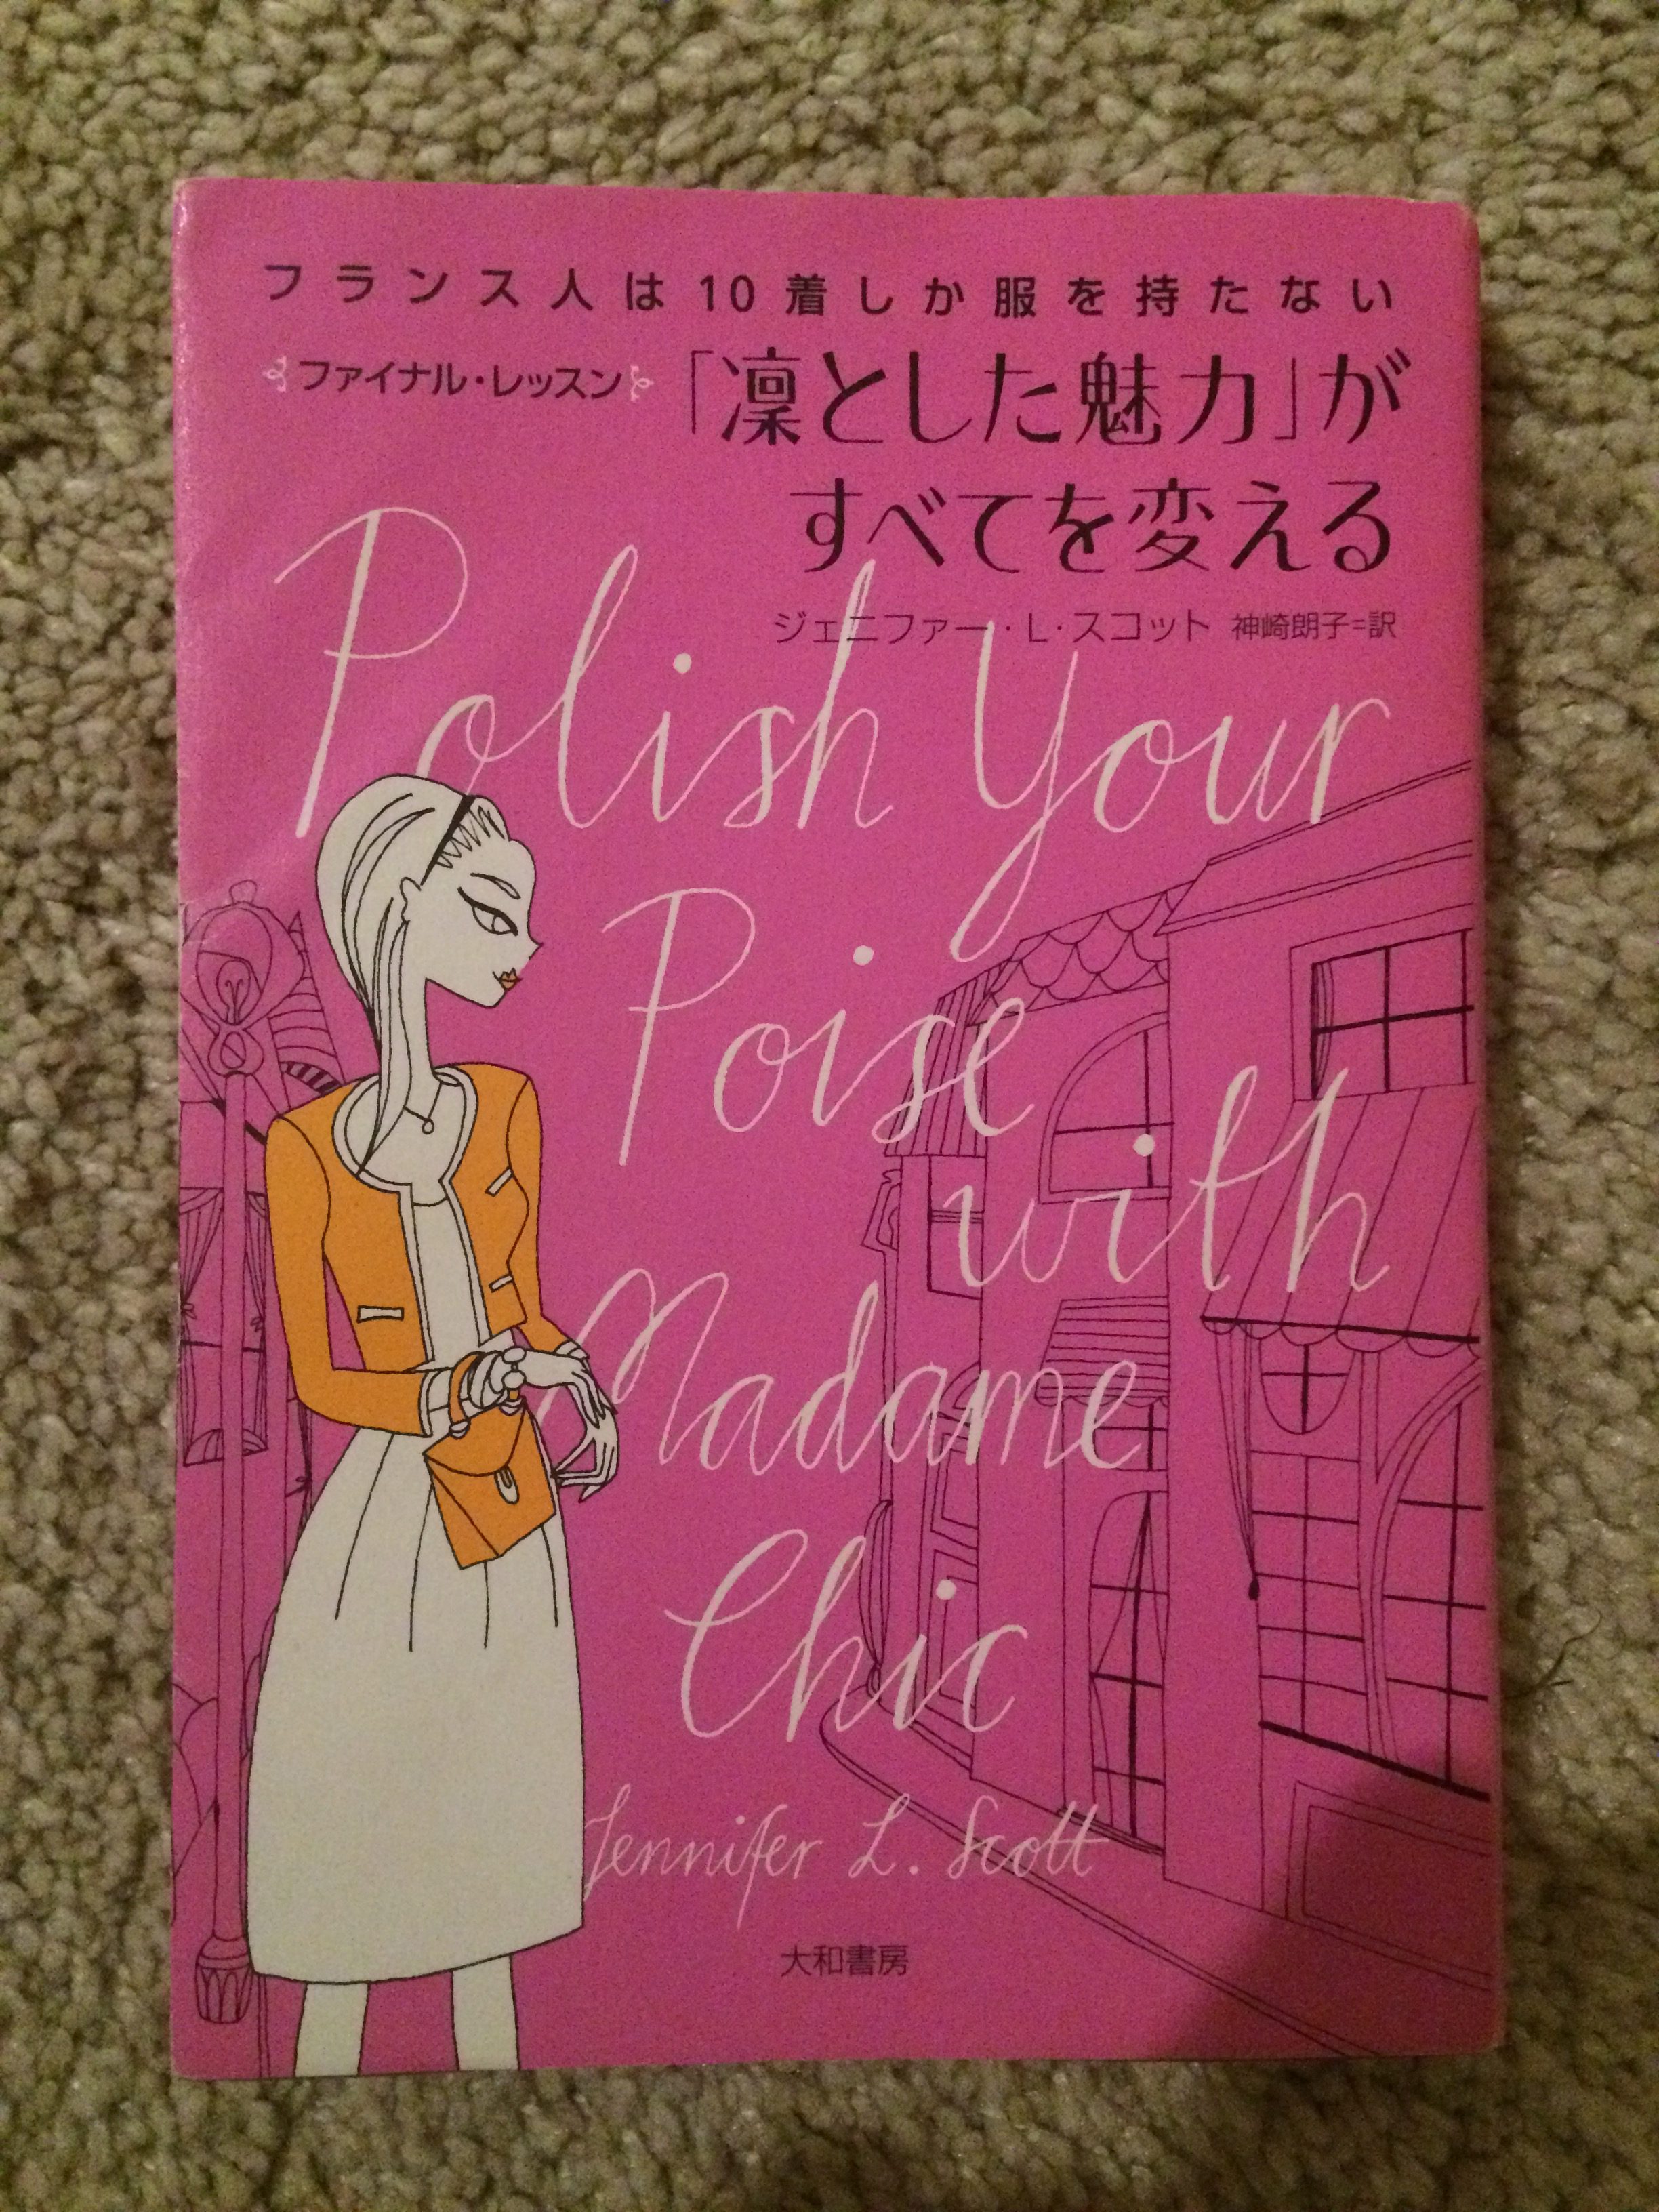 フランス人は10着しか服を持たない
ファイナル・レッスン 「凛とした魅力」が
すべてを変える
ジェニファー・L・スコット 神崎朗子=訳
Polish Your
Poise
with
Madame
Chic
Jennifer L. Scott
大和書房